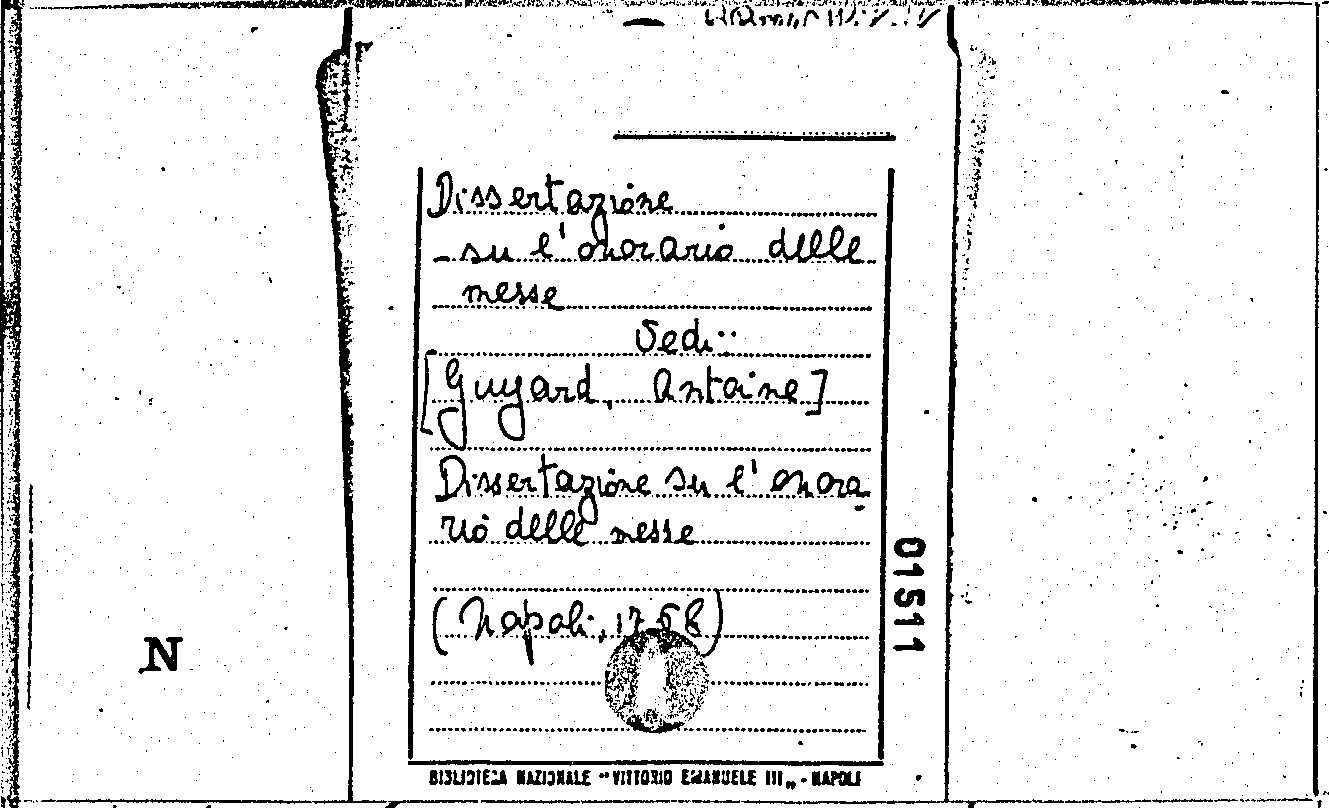 Dissertazione
- su l'onorario delle
messe
Vedi:
[Guyard, Antoine]
Dissertazione su l'onora
rio delle messe
(Napoli, 1768)
01511
N
BIBLIOTECA NAZIONALE "VITTORIO EMANUELE III„ - NAPOLI